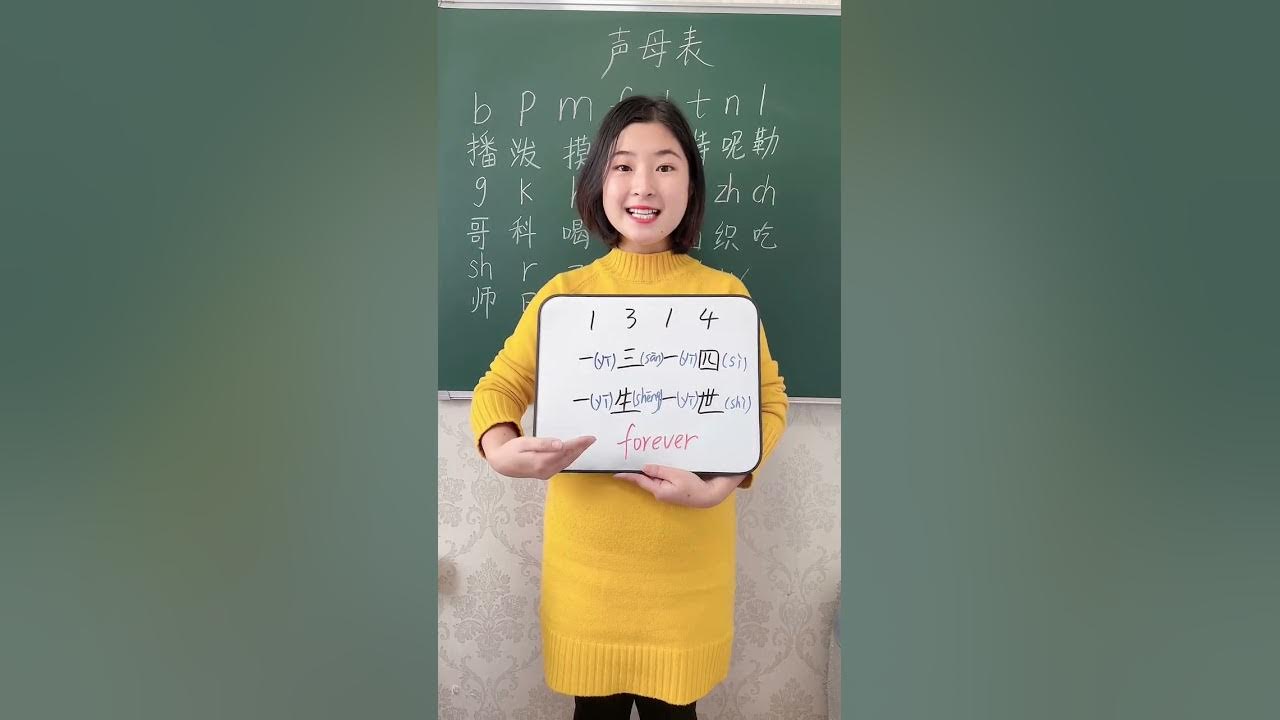 声母表
b p m f t n l
播 泼 摸 特 呢 勒
g k h zh ch
哥 科 喝 织 吃
sh r
师
1 3 1 4
一(yī)三(sān)一(yī)四(sì)
一(yī)生(shēng)一(yī)世(shì)
forever